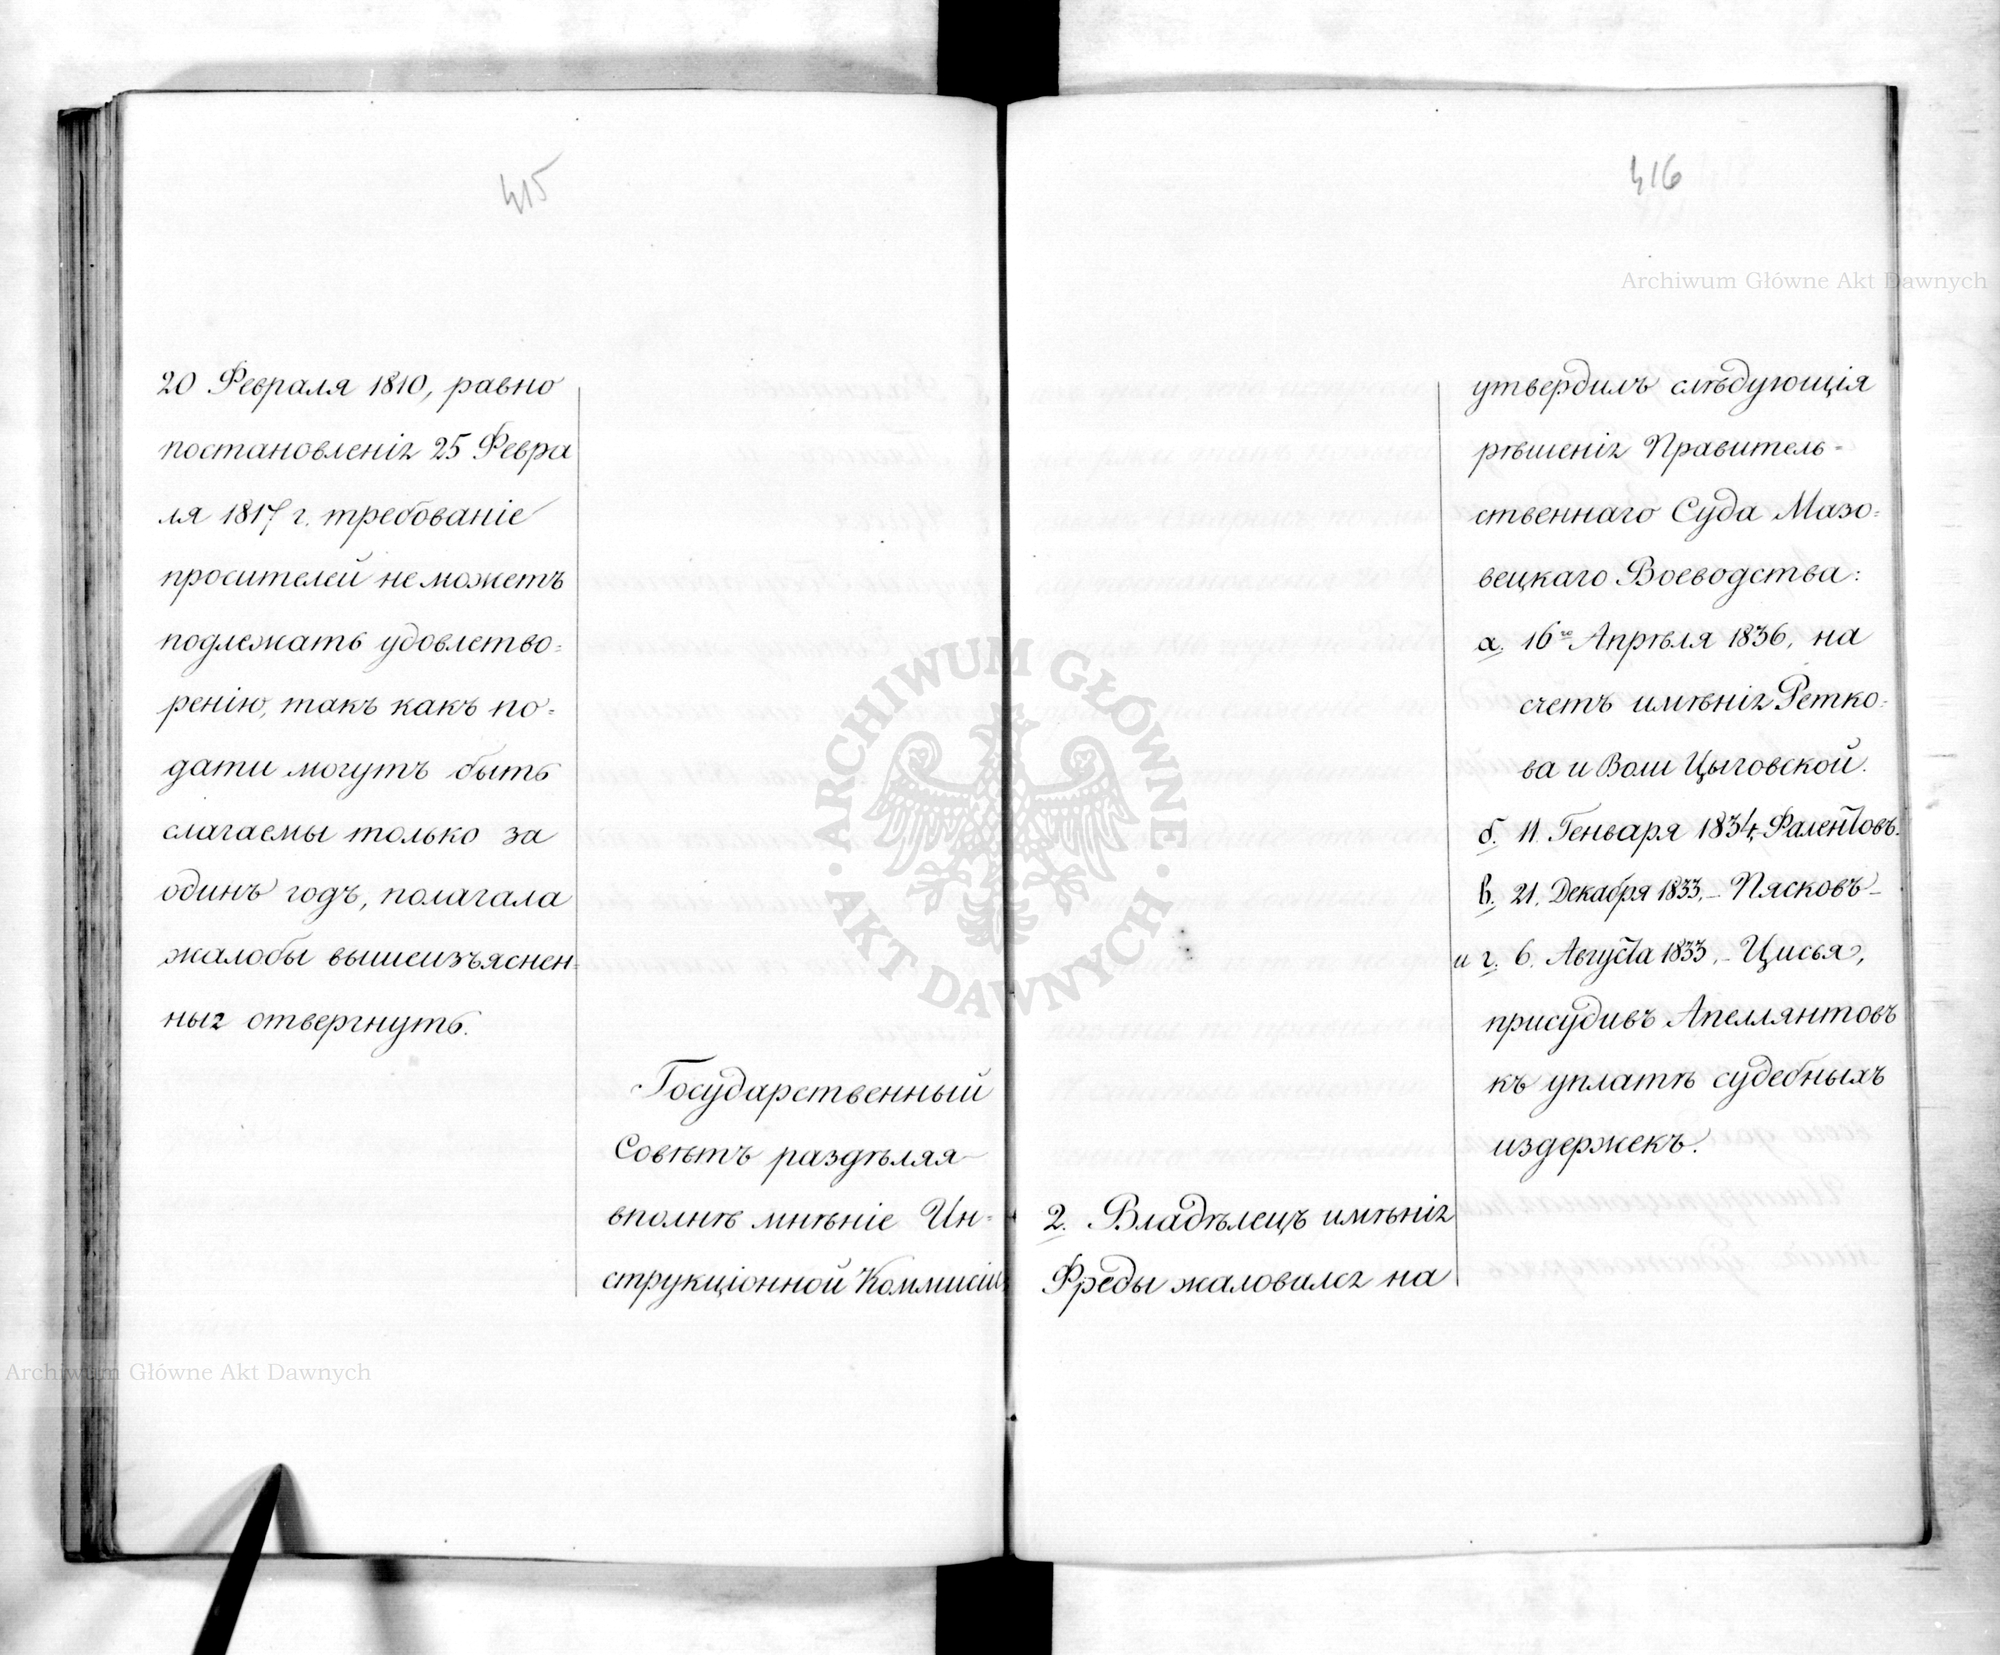 415
20 Февраля 1810, равно
постановленія 25 Февра
ля 1817 г. требованіе
просителей не можетъ
подлежать удовлетво=
ренію, такъ какъ по=
дати могутъ быть
слагаемы только за
одинъ годъ, полагала
жалобы вышеизъяснен=
ныя отвергнуть.
Государственный
Совѣтъ раздѣляя
вполнѣ мнѣніе Ин=
струкціонной Коммисіи,
416
утвердилъ слѣдующія
рѣшенія Правитель=
ственнаго Суда Мазо=
вецкаго Воеводства:
а. 16го Апрѣля 1836, на
счетъ имѣнія Ретко=
ва и Воли Цыговской.
б. 11. Генваря 1834, Фалентовъ.
в. 21. Декабря 1833, – Пясковъ –
и г. 6. Августа 1833, – Цисья,
присудивъ Апеллянтовъ
къ уплатѣ судебныхъ
издержекъ.
2. Владѣлецъ имѣнія
Фреды жаловался на
Archiwum Główne Akt Dawnych
ARCHIWUM GŁÓWNE · AKT DAWNYCH ·
Archiwum Główne Akt Dawnych